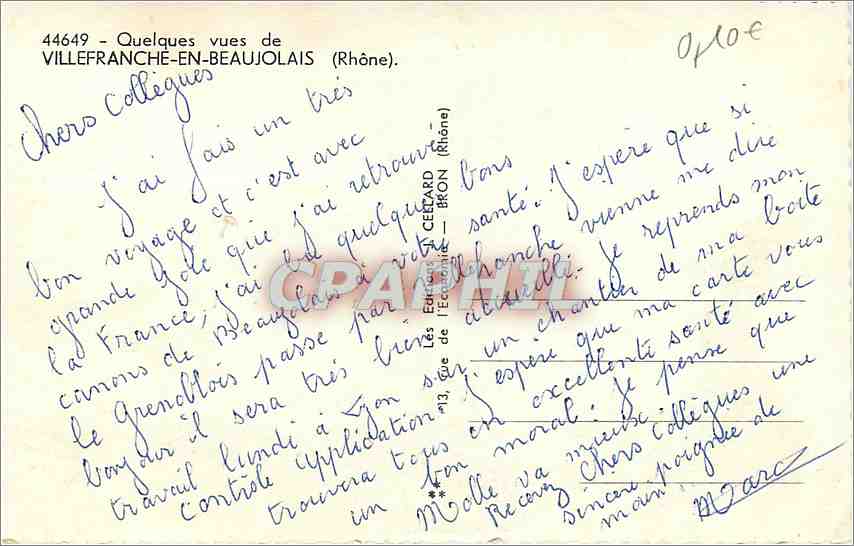 44649 - Quelques vues de
VILLEFRANCHE-EN-BEAUJOLAIS (Rhône).
0,10€
Chers Collègues
J'ai fais un très
bon voyage et c'est avec
grande joie que j'ai retrouvé
la France, j'ai bu quelques bons
canons de Beaujolais à votre santé. J'espère que si
le Grenoblois passe par Villefranche vienne me dire
bonjour il sera très bien accueilli. Je reprends mon
travail lundi à Lyon sur un chantier de ma boîte
contrôle application. J'espère que ma carte vous
trouvera tous en excellente santé avec
un bon moral. Je pense que
Molle va mieux.
Recevez Chers Collègues une
sincère poignée de
main.
Marc
Les Editions J. CELLARD
13, rue de l'Economie — BRON (Rhône)
CPAPHIL